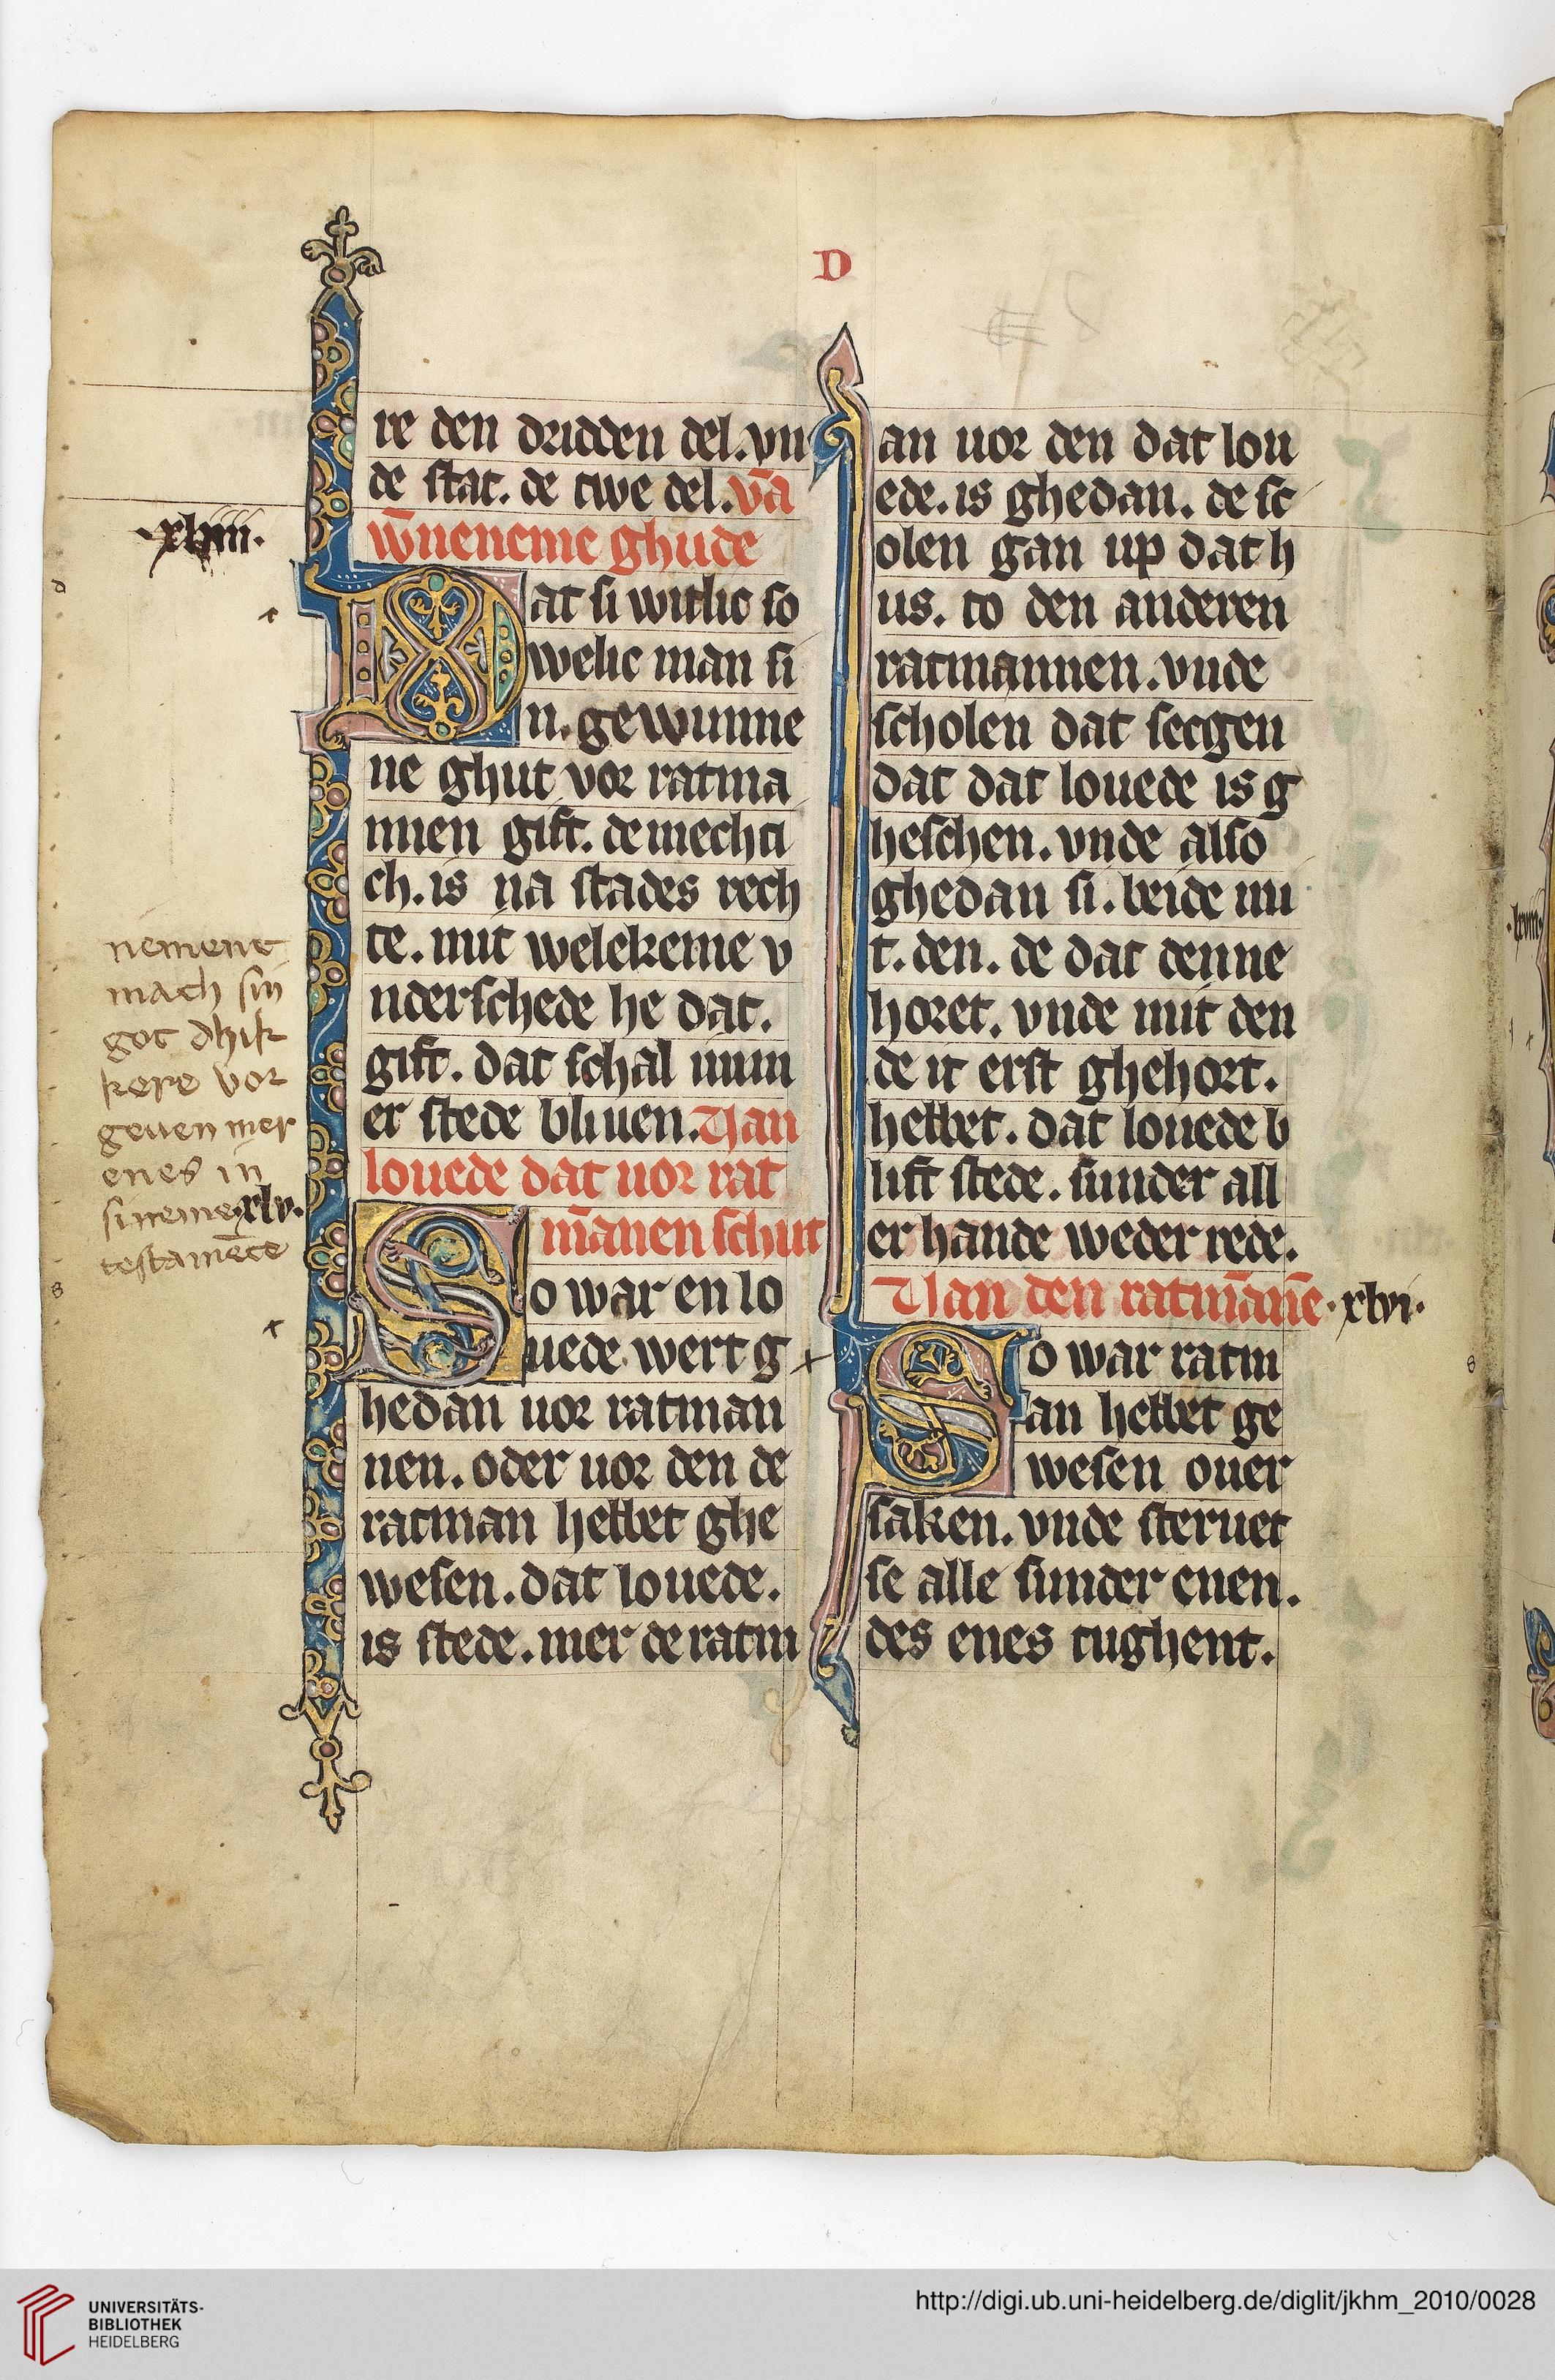 D
re den dridden del. vn
de stat. de twe del. vā
w̄neneme ghude
·xliiii·
Dat si witlic so
welic man si
n. gewunne
ne ghut vor ratma
nnen gift. de mechti
ch. is na stades rech
te. mit welekeme v
nderschede he dat.
gift. dat schal imm
er stede bliuen. Uan
louede dat uor rat
m̄anen schut
nement
mach sin
got dhik
kere vor
geuen mer
enes in
sineme
testamēte
·xlv·
So war en lo
uede wert g
hedan uor ratman
nen. oder uor den de
ratman hebbet ghe
wesen. dat louede.
is stede. mer de ratm
an uor den dat lou
ede. is ghedan. de sc
olen gan up dat h
us. to den anderen
ratmannen. vnde
scholen dat secgen
dat dat louede is g
heschen. vnde also
ghedan si. beide mi
t. den. de dat denne
horet. vnde mit den
de it erst ghehort.
hebbet. dat louede b
lift stede. sunder all
er hande weder rede.
Uan den ratm̄anē ·xlvi·
So war ratm
an hebbet ge
wesen ouer
saken. vnde steruet
se alle sunder enen.
des enes tughent.
UNIVERSITÄTS-
BIBLIOTHEK
HEIDELBERG
http://digi.ub.uni-heidelberg.de/diglit/jkhm_2010/0028